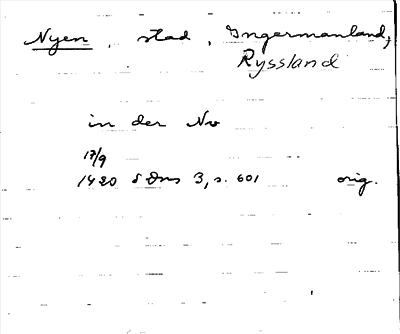 Nyen, stad, Ingermanland,
Ryssland
in der Nv
17/9
1420 SDns 3, s. 601 orig.